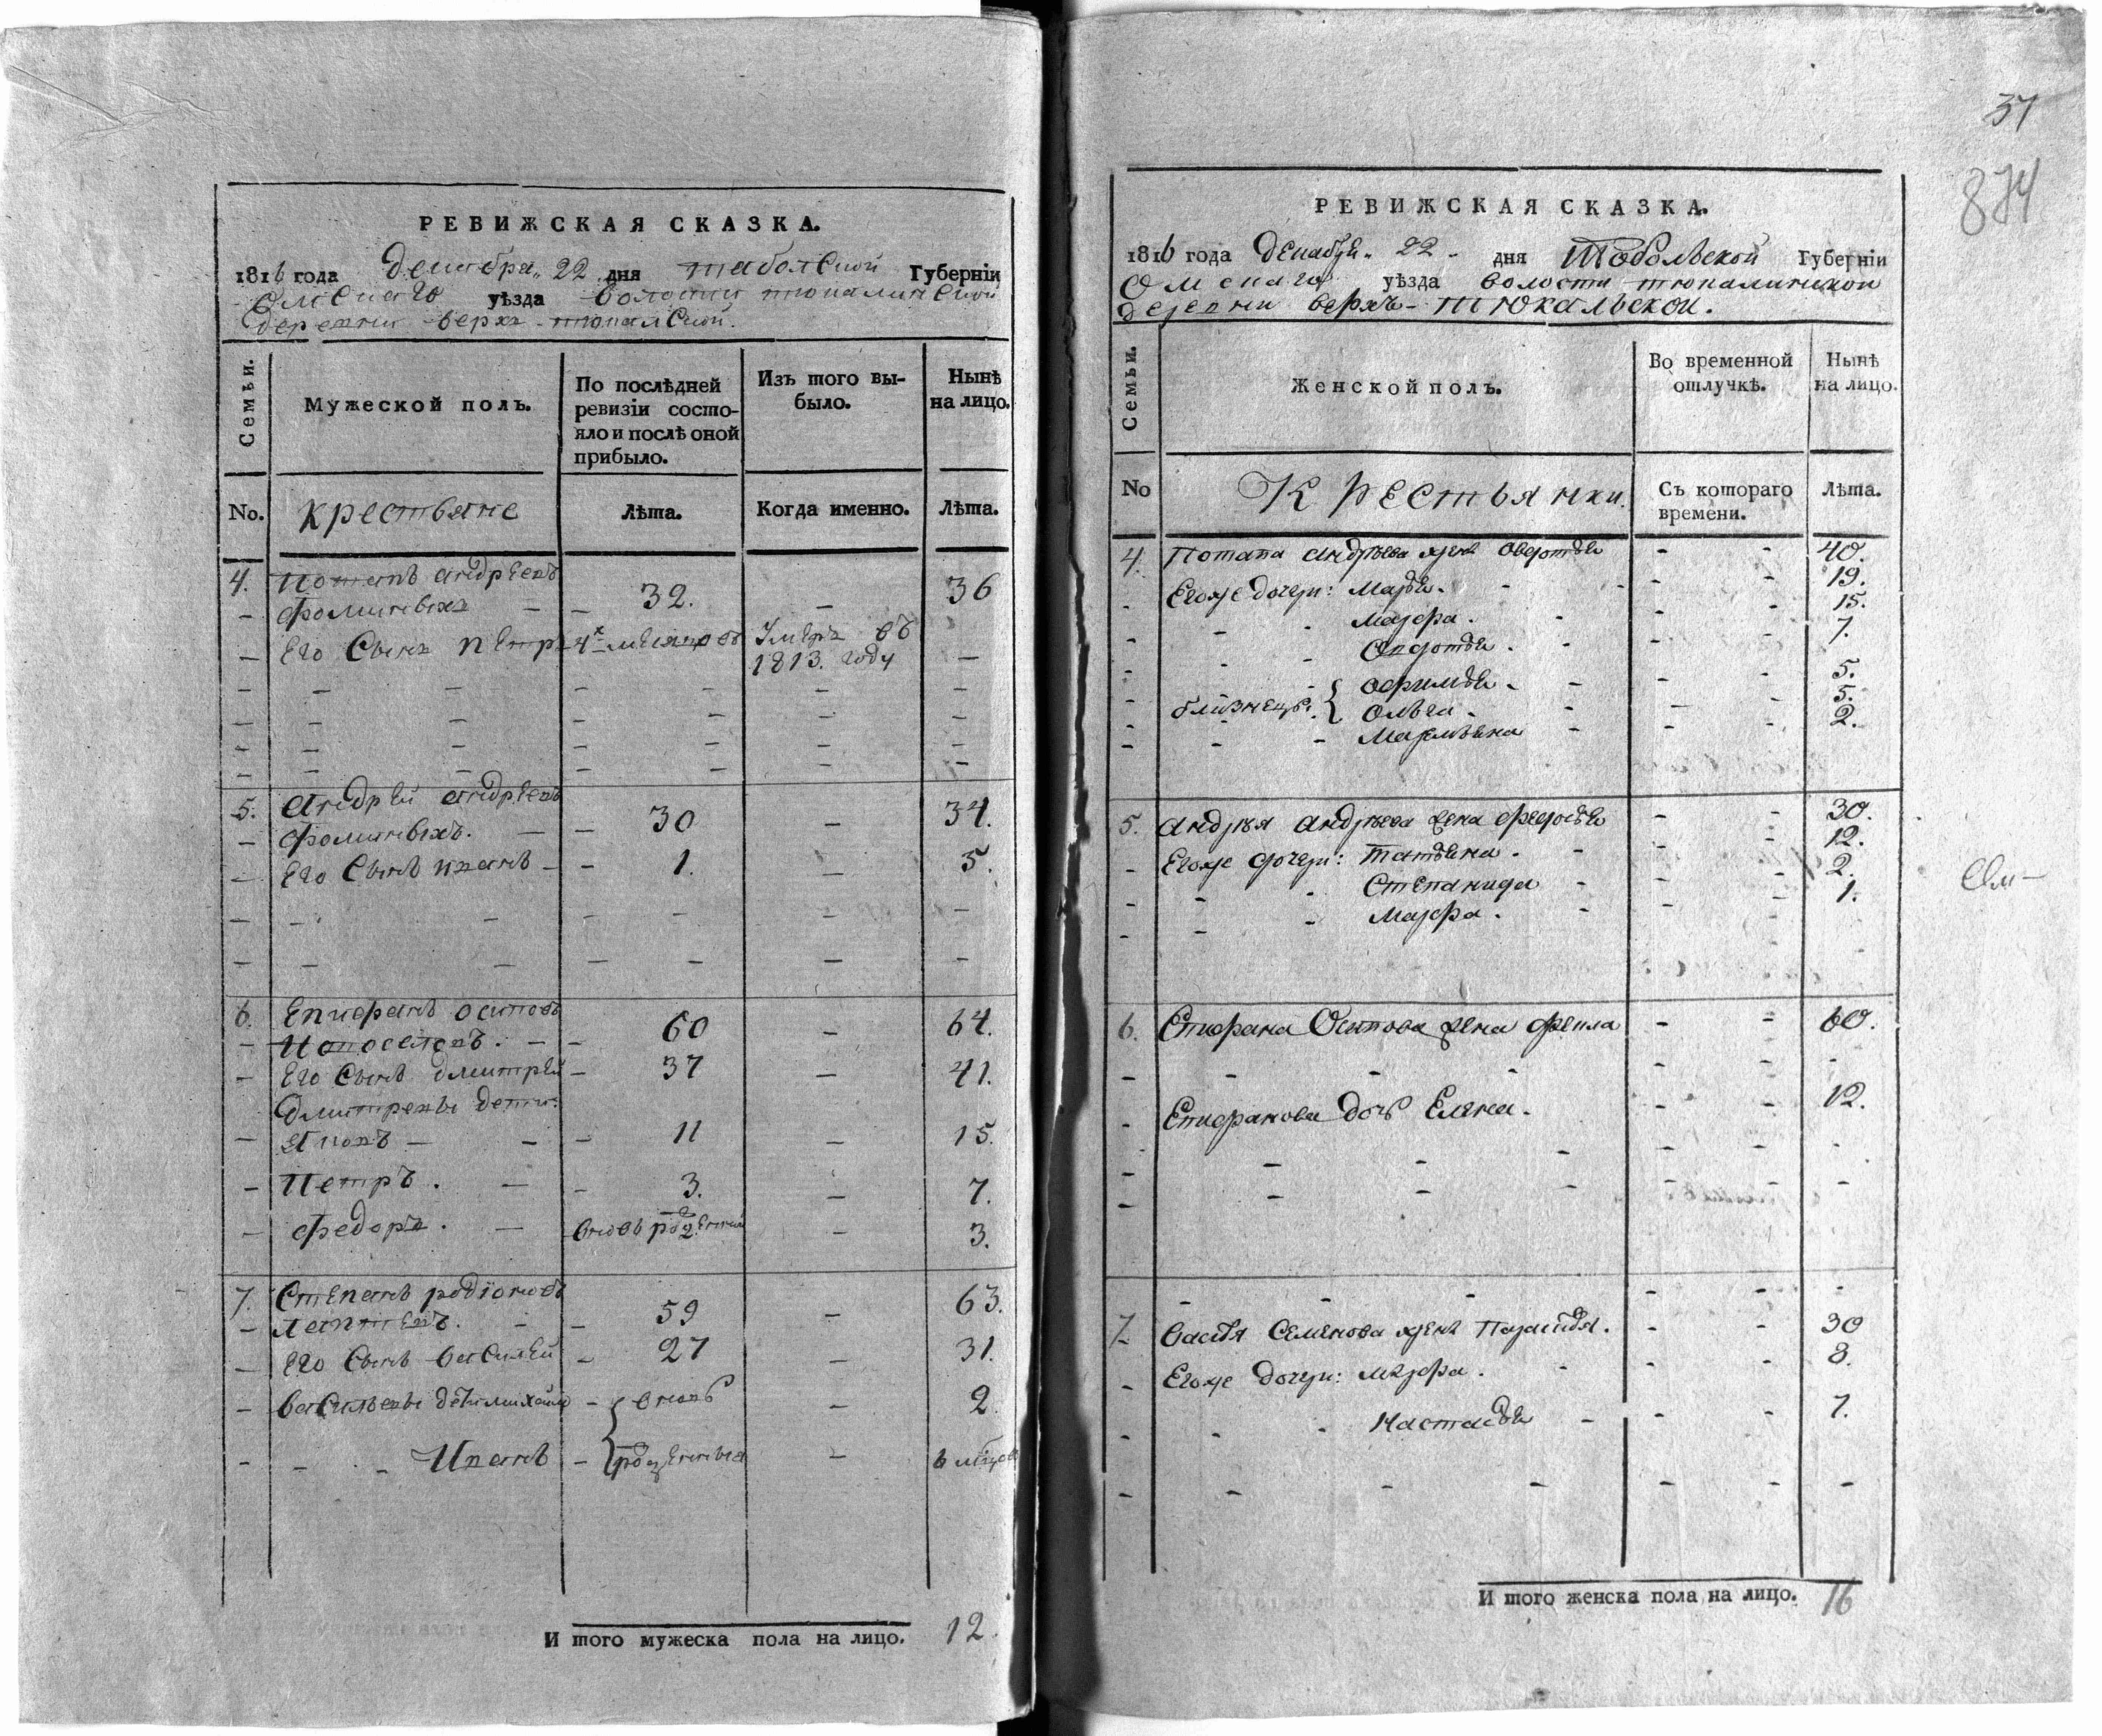 РЕВИЖСКАЯ СКАЗКА.
1816 года Декабря 22 дня Таболской Губернїи
Омскаго уѣзда волости тюкалинской
деревни верхъ-тюкалской.
Семьи.
Мужеской полъ.
По послѣдней ревизїи состояло и послѣ оной прибыло.
Изъ того выбыло.
Нынѣ на лицо.
No. крестьяне Лѣта. Когда именно. Лѣта.
4. Потапъ андреевъ
Фоминыхъ 32. 36
Его Сынъ Петръ 4х месяцовъ Умеръ въ
1813. году
5. Андрей андреевъ
Фоминыхъ. 30 34.
Его Сынъ иванъ 1. 5.
6. Епифанъ осиповъ
Новоселовъ. 60 64.
Его Сынъ дмитрей 37 41.
Дмитревы дети:
Яковъ 11 15.
Петръ. 3. 7.
Федоръ. вновь рожденной 3.
7. Степанъ родїоновъ
Лаптевъ. 59 63.
Его Сынъ василей 27 31.
Васильевы дѣти михайло вновь 2
Иванъ рожденныя 6 мѣсяцовъ
И того мужеска пола на лицо. 12.
37
874
РЕВИЖСКАЯ СКАЗКА.
1816 года Декабря 22 дня Тобольской Губернїи
Омскаго уѣзда волости тюкалинской
деревни верхъ-тюкальской.
Семьи.
Женской полъ.
Во временной отлучкѣ.
Нынѣ на лицо.
No Крестьянки. Съ котораго времени. Лѣта.
4. Потапа андрѣева жена Овдотья 40.
Егоже дочери: Марья. 19.
Марфа. 15.
Овдотья. 7.
близнецы: Офимья 5.
Ольга 5.
Маремьяна 2.
5. Андрѣя андрѣева жена федосья 30.
Егоже дочери: татьяна. 12.
Степанида 2.
Марфа. 1.
Ом—
6. Епифана Осипова жена фекла 60.
Епифанова дочь Елена. 12.
7. Василья Семенова жена Парасковья. 30
Егоже дочери: марфа. 8.
Настасья 7.
И того женска пола на лицо. 16